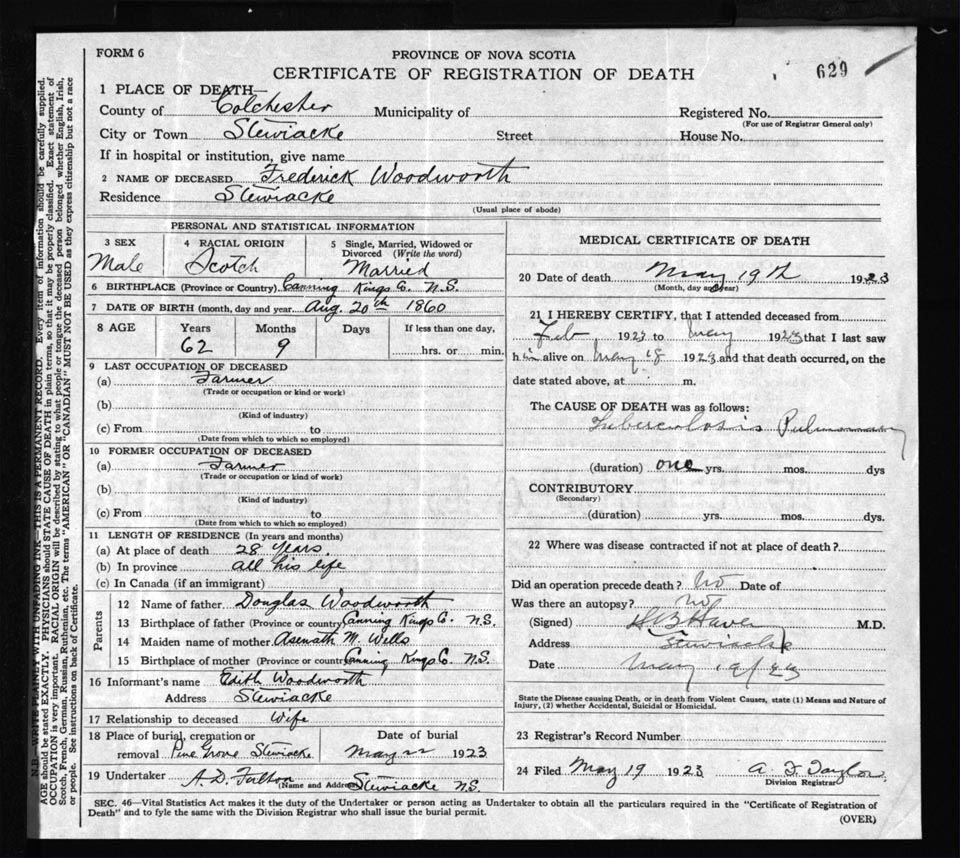 FORM 6
PROVINCE OF NOVA SCOTIA
CERTIFICATE OF REGISTRATION OF DEATH
629
1 PLACE OF DEATH—
County of Colchester Municipality of Registered No.
(For use of Registrar General only)
City or Town Stewiacke Street House No.
If in hospital or institution, give name
2 NAME OF DECEASED Frederick Woodworth
Residence Stewiacke
(Usual place of abode)
PERSONAL AND STATISTICAL INFORMATION
3 SEX 4 RACIAL ORIGIN 5 Single, Married, Widowed or
Divorced (Write the word)
Male Scotch Married
6 BIRTHPLACE (Province or Country) Canning Kings Co. N.S.
7 DATE OF BIRTH (month, day and year) Aug. 20th 1860
8 AGE Years Months Days If less than one day,
62 9 hrs. or min.
9 LAST OCCUPATION OF DECEASED
(a) Farmer
(Trade or occupation or kind or work)
(b)
(Kind of industry)
(c) From to
(Date from which to which so employed)
10 FORMER OCCUPATION OF DECEASED
(a) Farmer
(Trade or occupation or kind of work)
(b)
(Kind of industry)
(c) From to
(Date from which to which so employed)
11 LENGTH OF RESIDENCE (In years and months)
(a) At place of death 28 years.
(b) In province all his life
(c) In Canada (if an immigrant)
Parents
12 Name of father Douglas Woodworth
13 Birthplace of father (Province or country) Canning Kings Co. N.S.
14 Maiden name of mother Asenath M. Wells
15 Birthplace of mother (Province or country) Canning Kings Co. N.S.
16 Informant's name Edith Woodworth
Address Stewiacke
17 Relationship to deceased Wife
18 Place of burial, cremation or Date of burial
removal Pine Grove Stewiacke May 22 1923
19 Undertaker A. D. Fulton
(Name and Address) Stewiacke N.S.
MEDICAL CERTIFICATE OF DEATH
20 Date of death May 19th 1923
(Month, day and year)
21 I HEREBY CERTIFY, that I attended deceased from
Feb 1923 to May 1923 that I last saw
him alive on May 18 1923 and that death occurred, on the
date stated above, at m.
The CAUSE OF DEATH was as follows:
Tuberculosis Pulmonary
(duration) one yrs. mos. dys
CONTRIBUTORY
(Secondary)
(duration) yrs. mos. dys.
22 Where was disease contracted if not at place of death?
Did an operation precede death? No Date of
Was there an autopsy? No
(Signed) M.D.
Address Stewiacke
Date May 19/23
State the Disease causing Death, or in death from Violent Causes, state (1) Means and Nature of
Injury, (2) whether Accidental, Suicidal or Homicidal.
23 Registrar's Record Number
24 Filed May 19 1923 Taylor
Division Registrar
SEC. 46—Vital Statistics Act makes it the duty of the Undertaker or person acting as Undertaker to obtain all the particulars required in the "Certificate of Registration of
Death" and to fyle the same with the Division Registrar who shall issue the burial permit.
(OVER)
N.B.—WRITE PLAINLY WITH UNFADING INK—THIS IS A PERMANENT RECORD. Every item of information should be carefully supplied.
AGE should be stated EXACTLY. PHYSICIANS should STATE CAUSE OF DEATH in plain terms, so that it may be properly classified. Exact statement of
OCCUPATION is very important. RACIAL ORIGIN will be described by stating to what people or tongue the deceased person belonged whether English, Irish,
Scotch, French, German, Russian, Ruthenian, etc. The terms "AMERICAN" OR "CANADIAN" MUST NOT BE USED as they express citizenship but not a race
or people. See instructions on back of Certificate.